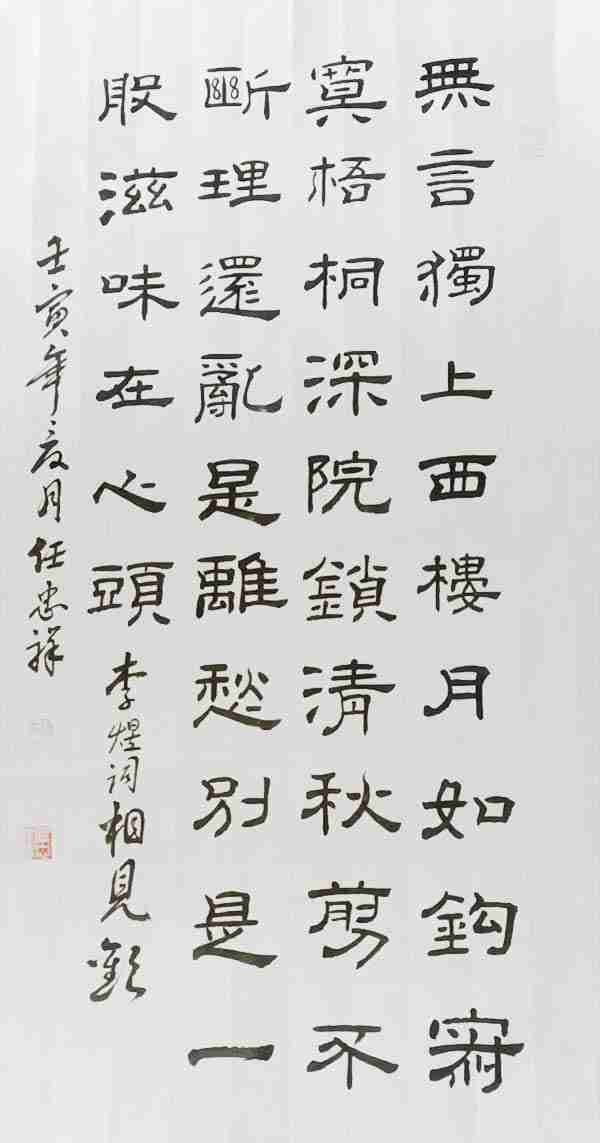 無言獨上西樓月如鉤寂
寞梧桐深院鎖清秋剪不
斷理還亂是離愁別是一
般滋味在心頭 李煜词相見歡
壬寅年夏月任忠祥